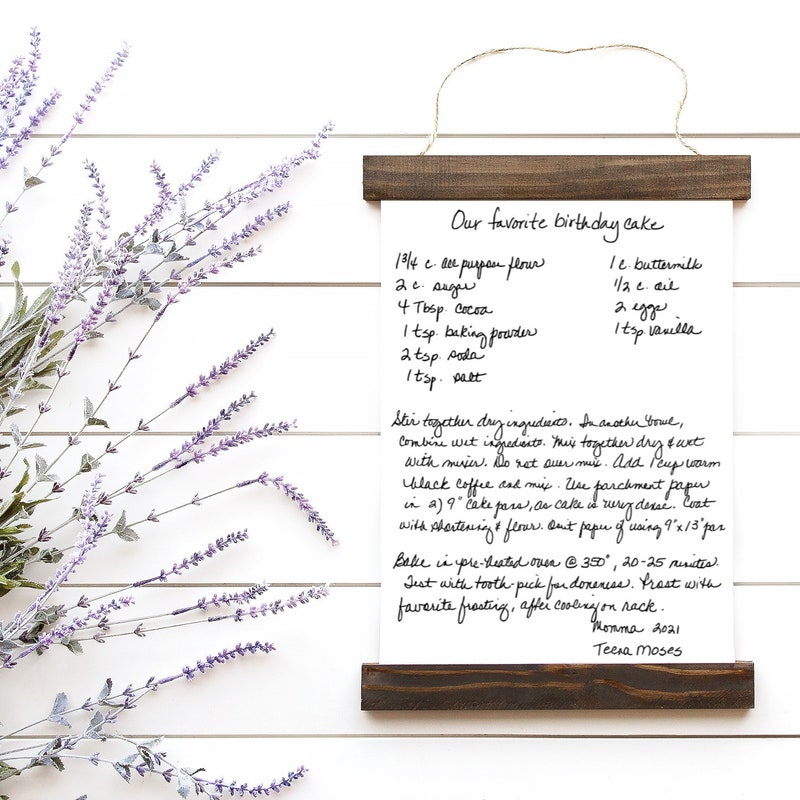 Our favorite birthday cake
1 3/4 c. all purpose flour
2 c. sugar
4 Tbsp. cocoa
1 tsp. baking powder
2 tsp. soda
1 tsp. salt
1 c. buttermilk
1/2 c. oil
2 eggs
1 tsp vanilla
Stir together dry ingredients. In another bowl,
combine wet ingredients. Mix together dry & wet
with mixer. Do not over mix. Add 1 cup warm
black coffee and mix. Use parchment paper
in 2) 9" cake pans, as cake is very dense. Coat
with shortening & flour. Omit paper if using 9"x13" pan
Bake in pre-heated oven @ 350°, 20-25 minutes.
Test with tooth-pick for doneness. Frost with
favorite frosting, after cooling on rack.
Momma 2021
Teena Moses